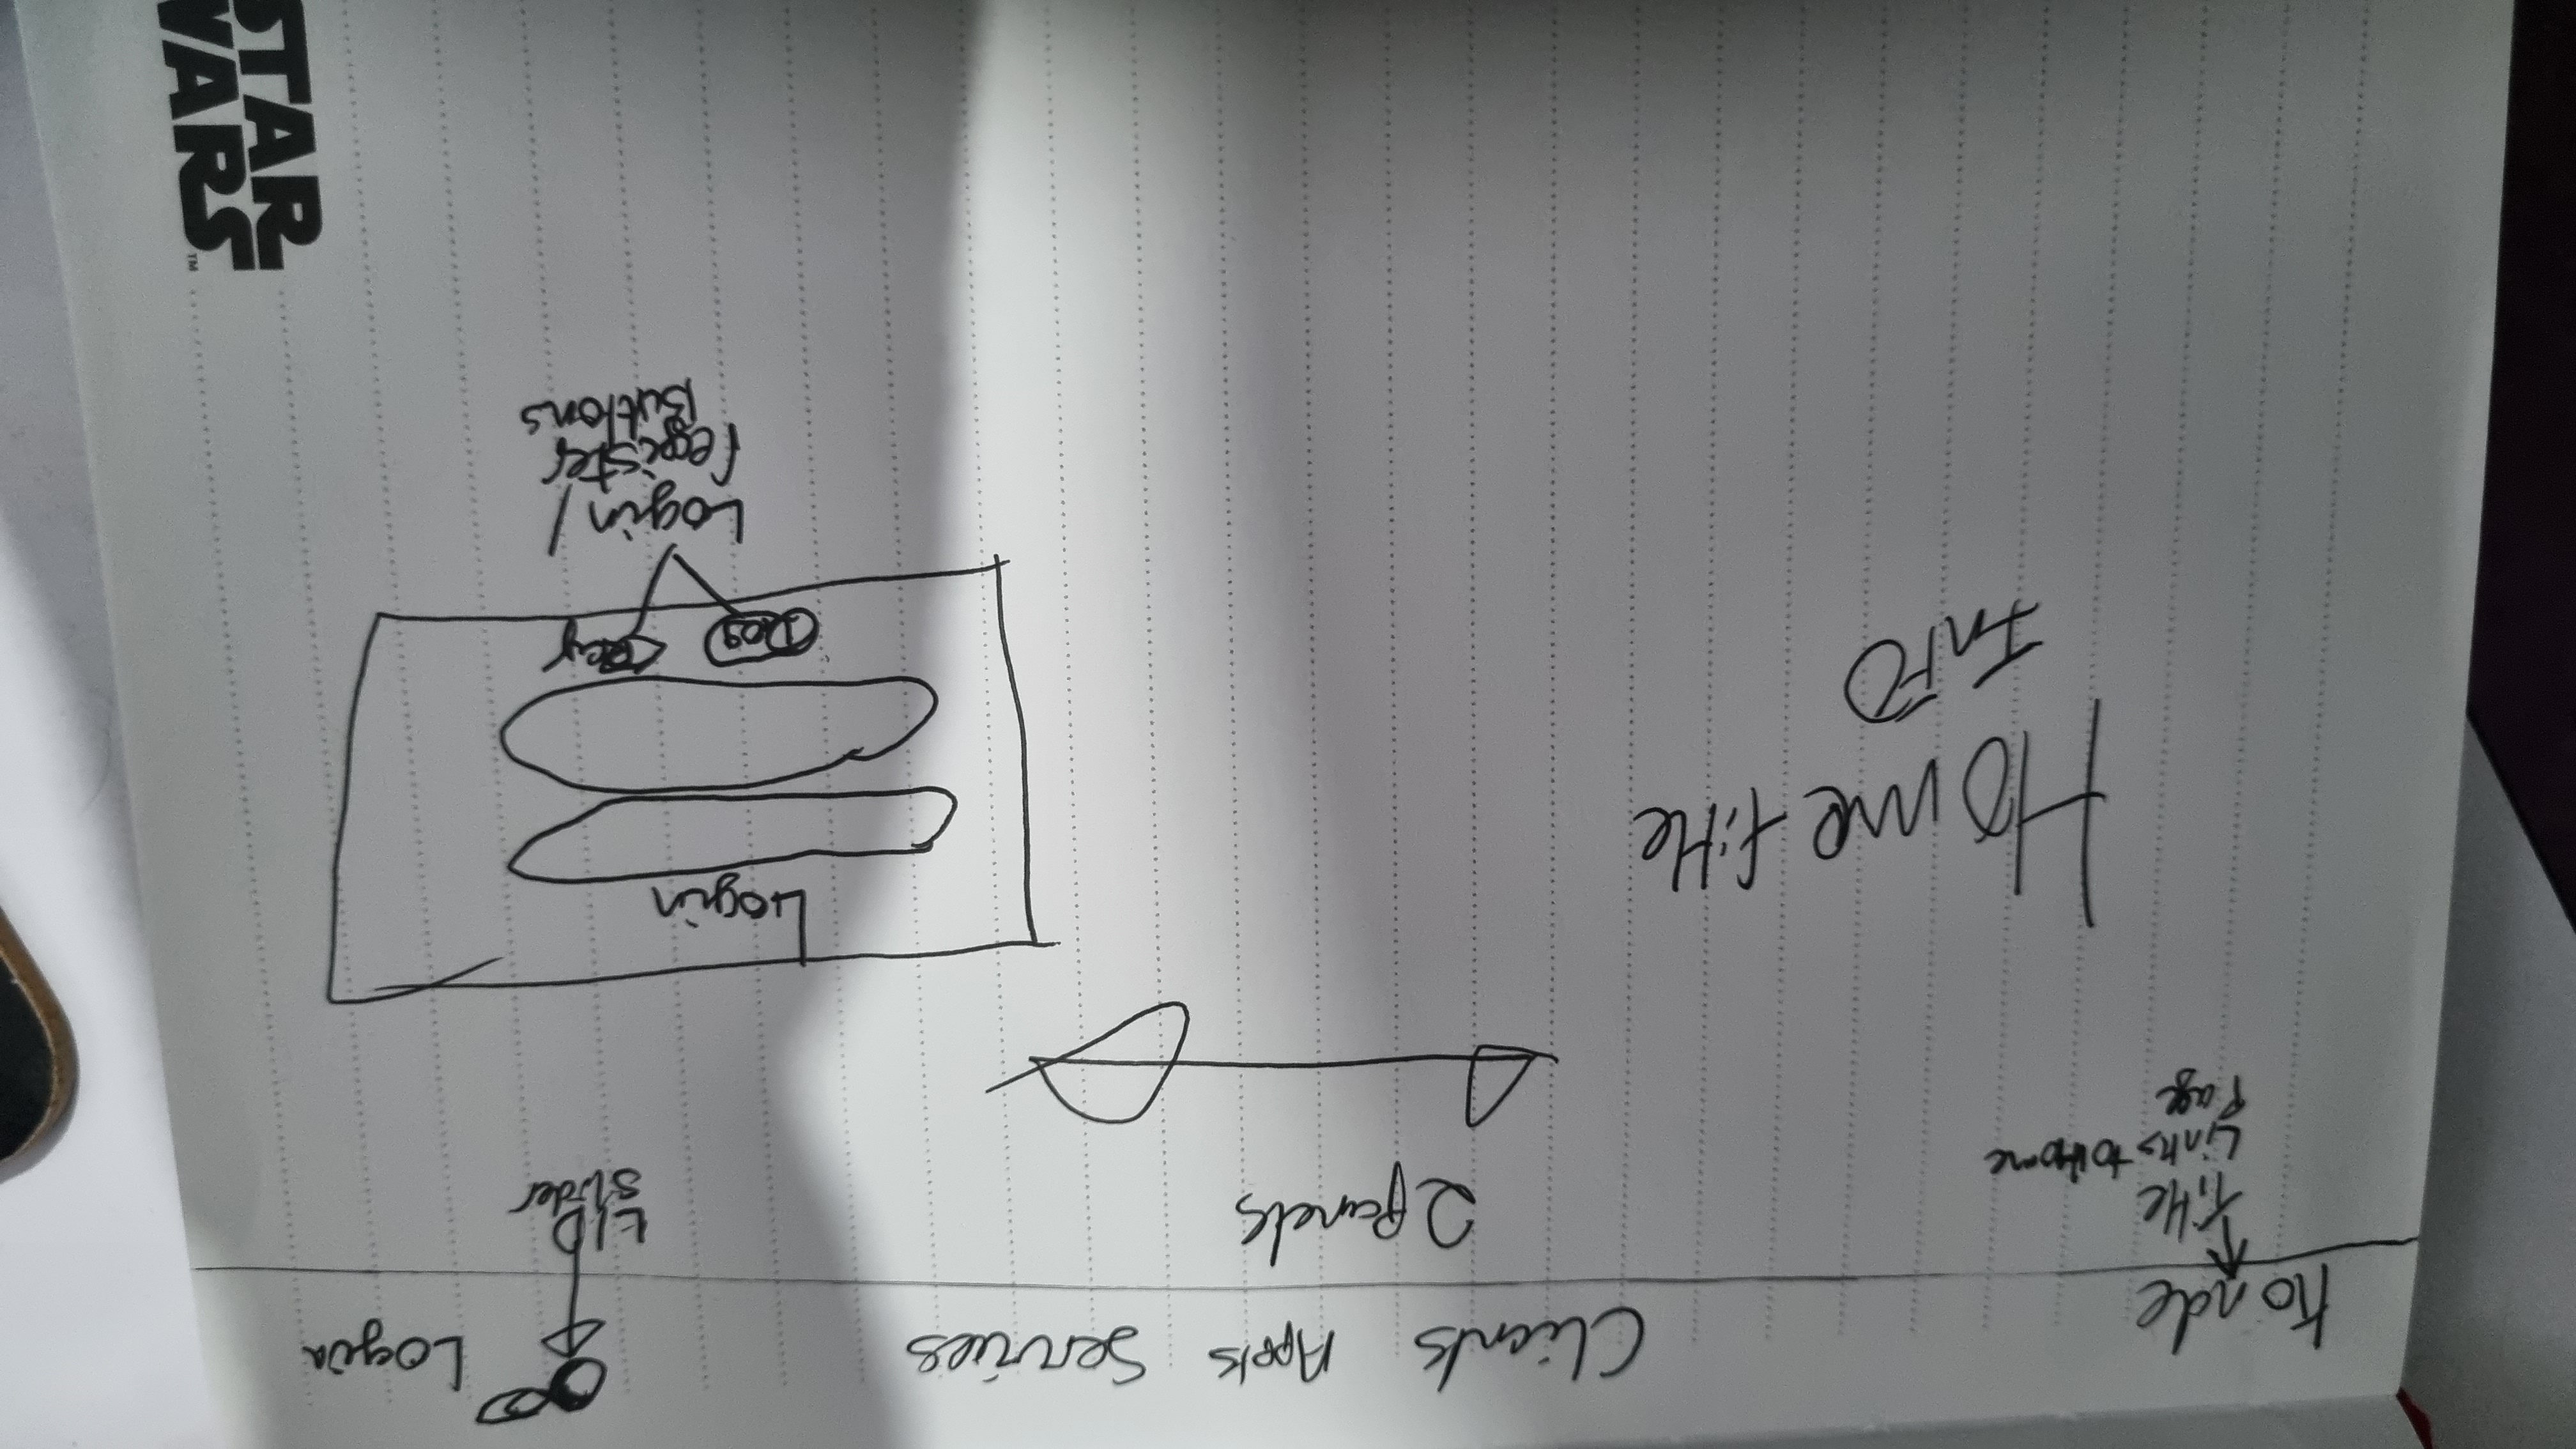 Konde
Clients Appts Services
Login
Title
Links to Home
Page
2 panels
L/D
Slider
Home title
Info
Login
Login /
register
Buttons
STAR
WARS™